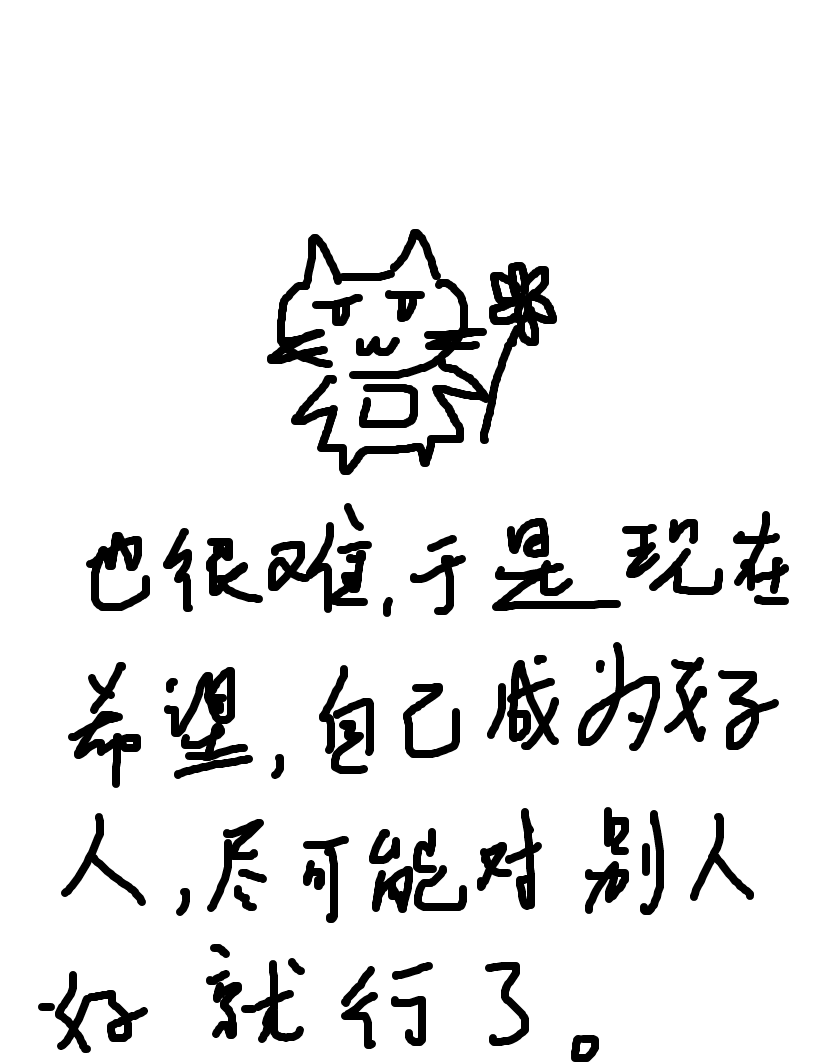 也很难，于是现在
希望，自己成为好
人，尽可能对别人
好就行了。